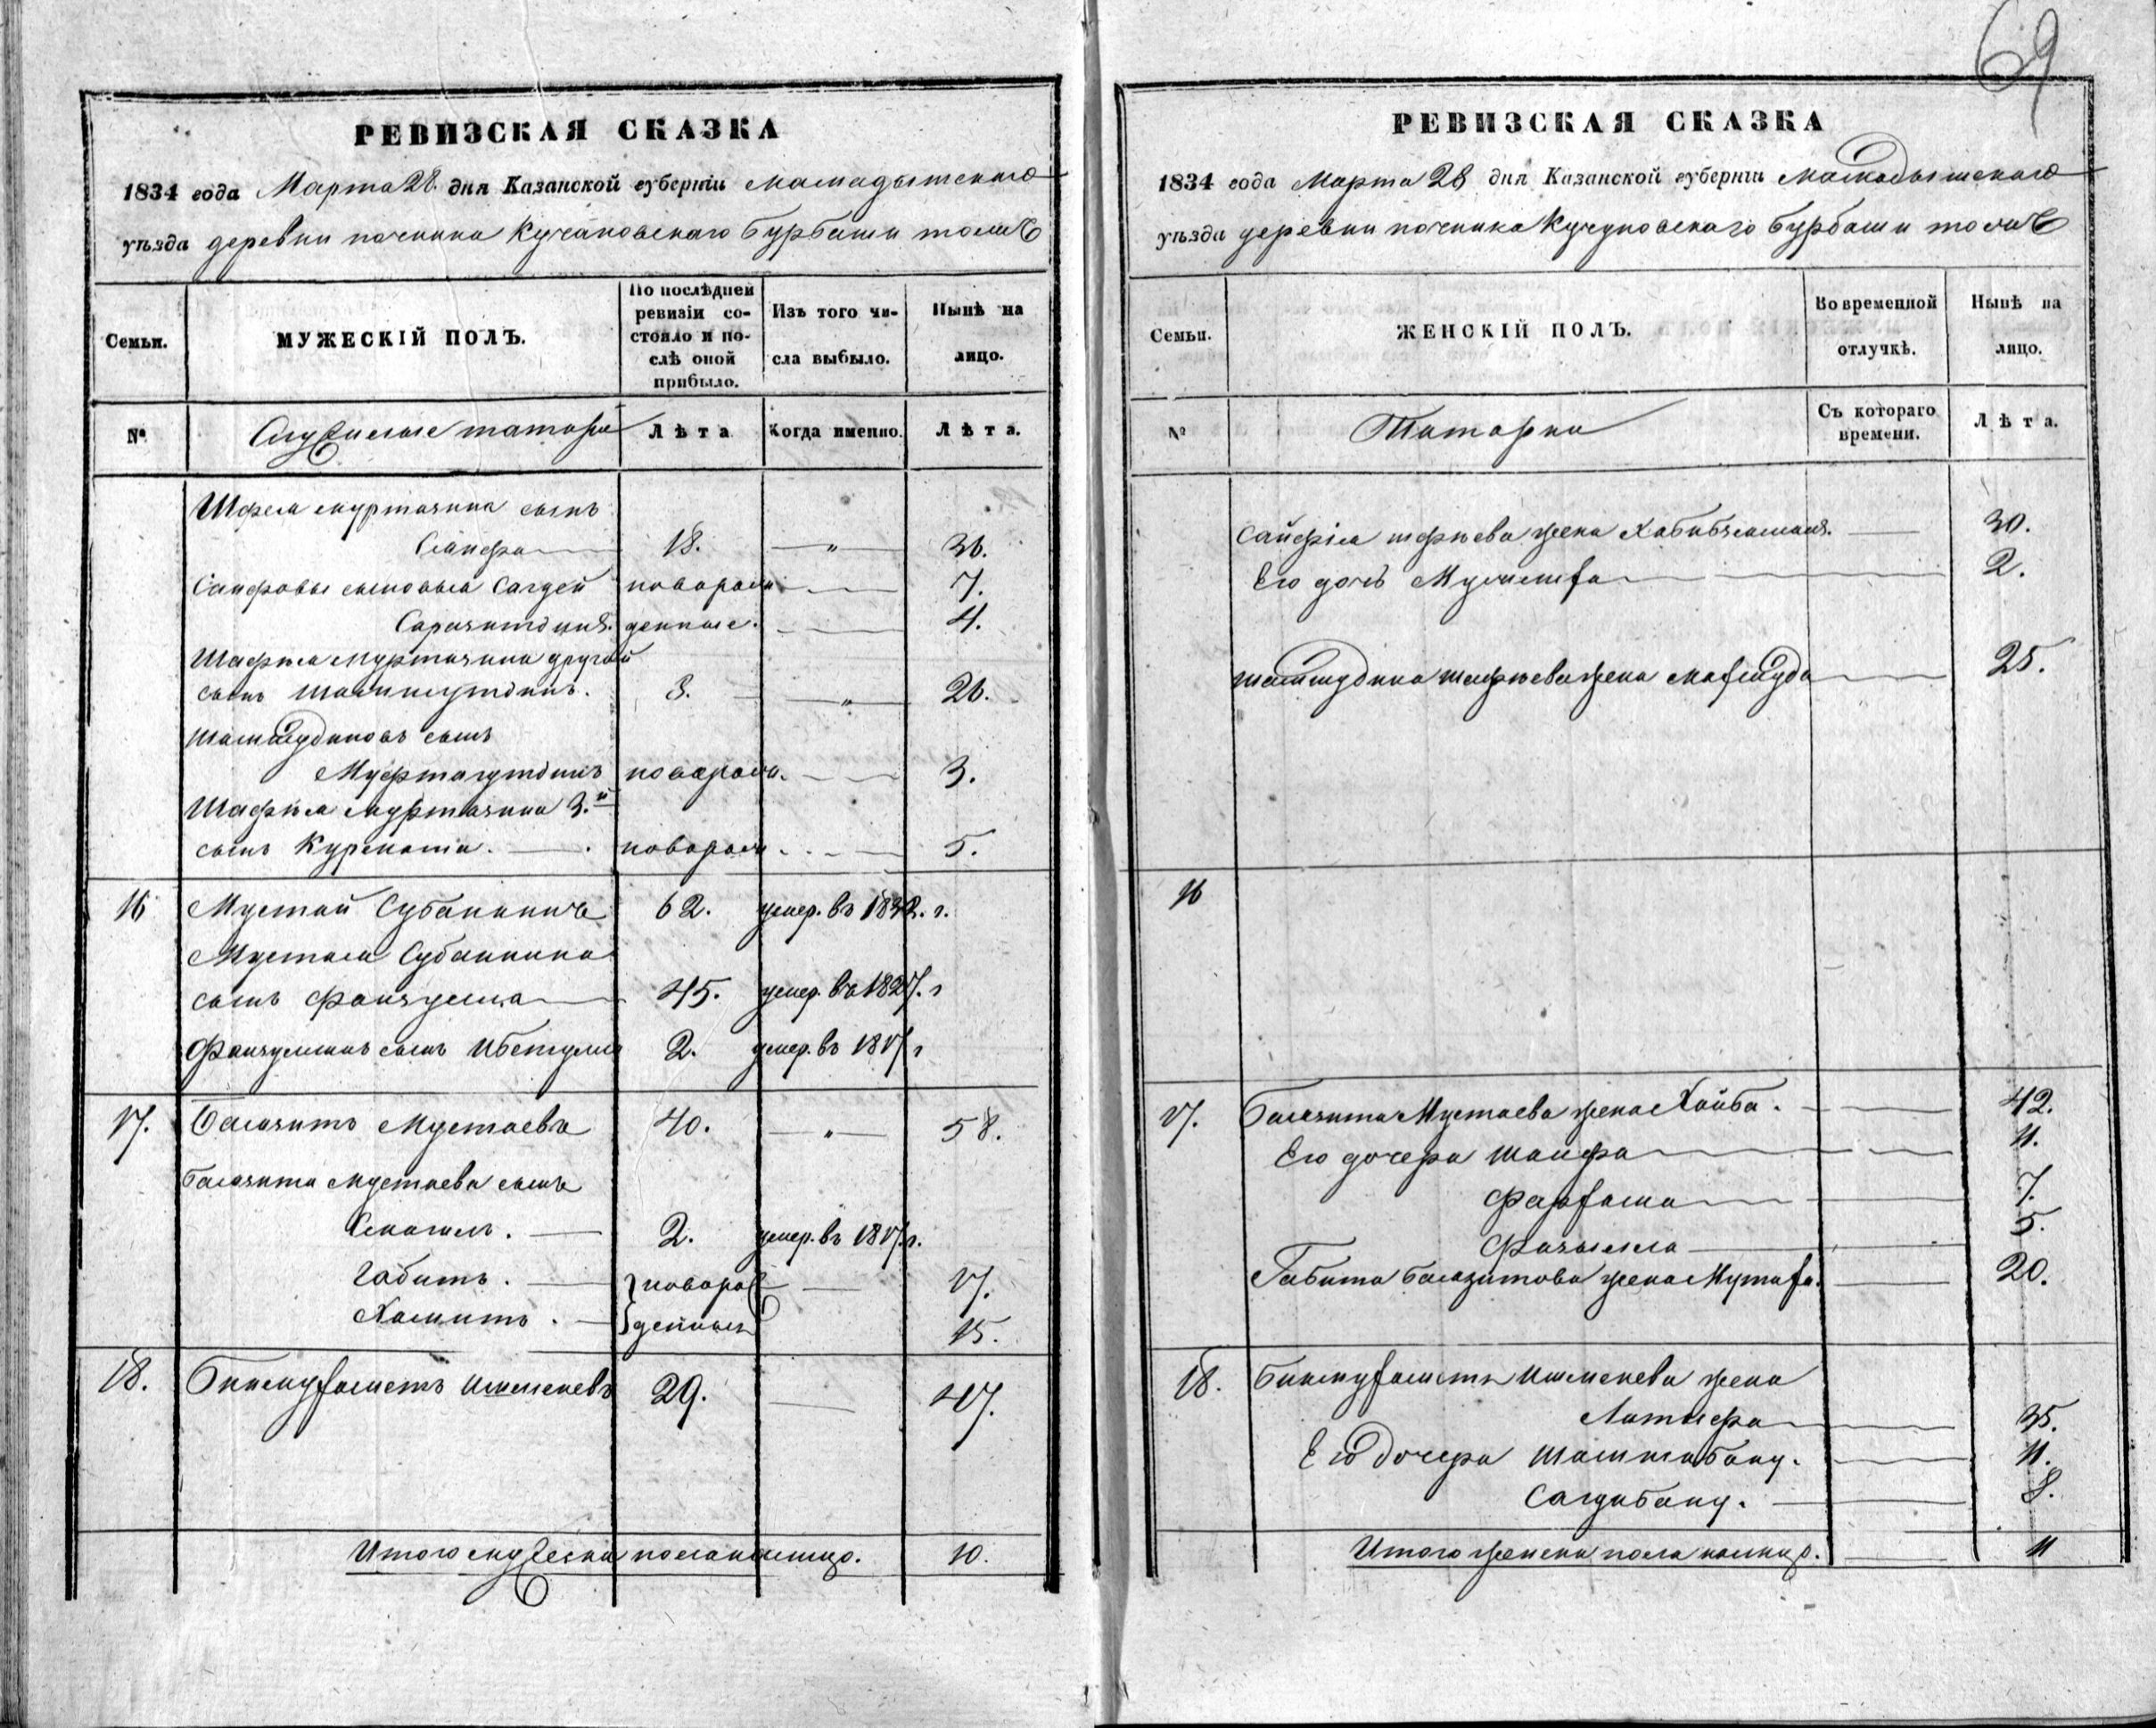 69
РЕВИЗСКАЯ СКАЗКА
1834 года Марта 28. дня Казанской губернiи Мамадышскаго
уѣзда деревни починка Кучуковскаго Бурбаши тожъ
Семьи.
МУЖЕСКIЙ ПОЛЪ.
По послѣдней ревизiи состояло и послѣ оной прибыло.
Изъ того числа выбыло.
Нынѣ на лицо.
№
Служилые татары
Лѣта
Когда именно.
Лѣта.
Шафея Муртазина сынъ
Сайфа 18. " 36.
Сайфовы сыновья Сагдей новорож 7.
денные. 4.
Шафѣя Муртазина другой
сынъ Шамшутдинъ. 8. " 26.
Шамшудиновъ сынъ
Мифтагутдинъ новорож. 3.
Шафѣя Муртазина 3.й
сынъ Курамша. новорож 5.
16 Мустай Субанкинъ 62. умер. въ 1832. г.
Мустая Субанкина
сынъ Файзулла 45. умер. въ 1827. г
Файзуллинъ сынъ Ибетулла 2. умер. въ 1817 г
17. Баязитъ Мустаевъ 40. " 58.
Баязита Мустаева сынъ
Исмагилъ. 2. умер. въ 1817. г.
Габитъ. новорож 17.
Хамитъ. денные 15.
18. Бикмухаметъ Ишменевъ 29. 47.
Итого мужеска пола налицо. 10.
РЕВИЗСКАЯ СКАЗКА
1834 года Марта 28 дня Казанской губернiи Мамадышскаго
уѣзда деревни починка Кучуковскаго Бурбаши тожъ
Семьи.
ЖЕНСКIЙ ПОЛЪ.
Во временной отлучкѣ.
Нынѣ на лицо.
№
Татарки
Съ котораго времени.
Лѣта.
Сайфiя Шафѣева жена Хабибзямаля. 30.
Его дочь 2.
Шамшудина Шафѣева жена Махмуда 25.
16
17. Баязита Мустаева жена Хайба. 42.
Его дочери Шаифа 11.
7.
Фазылма 5.
Габита Баязитова жена 20.
18. Бикмухаметя Ишменева жена
Латифа 35.
Его дочери Шамшибану. 11.
Сагдибану. 8.
Итого женска пола налицо. 11